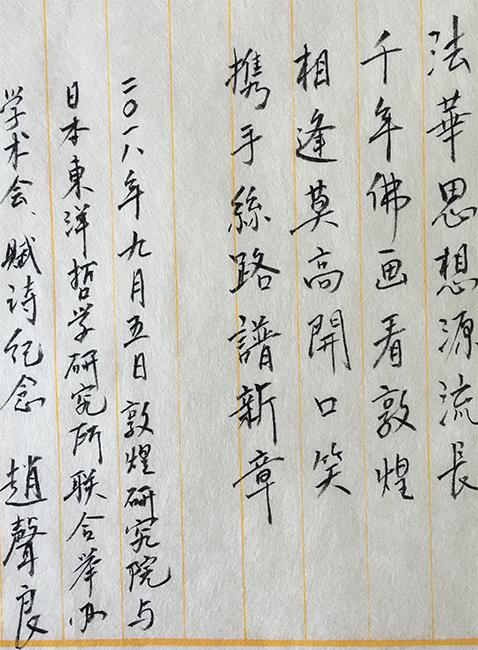 法華思想源流長
千年佛画看敦煌
相逢莫高開口笑
携手絲路譜新章
二〇一八年九月五日敦煌研究院与
日本東洋哲学研究所联合举办
学术会、赋诗纪念 趙聲良